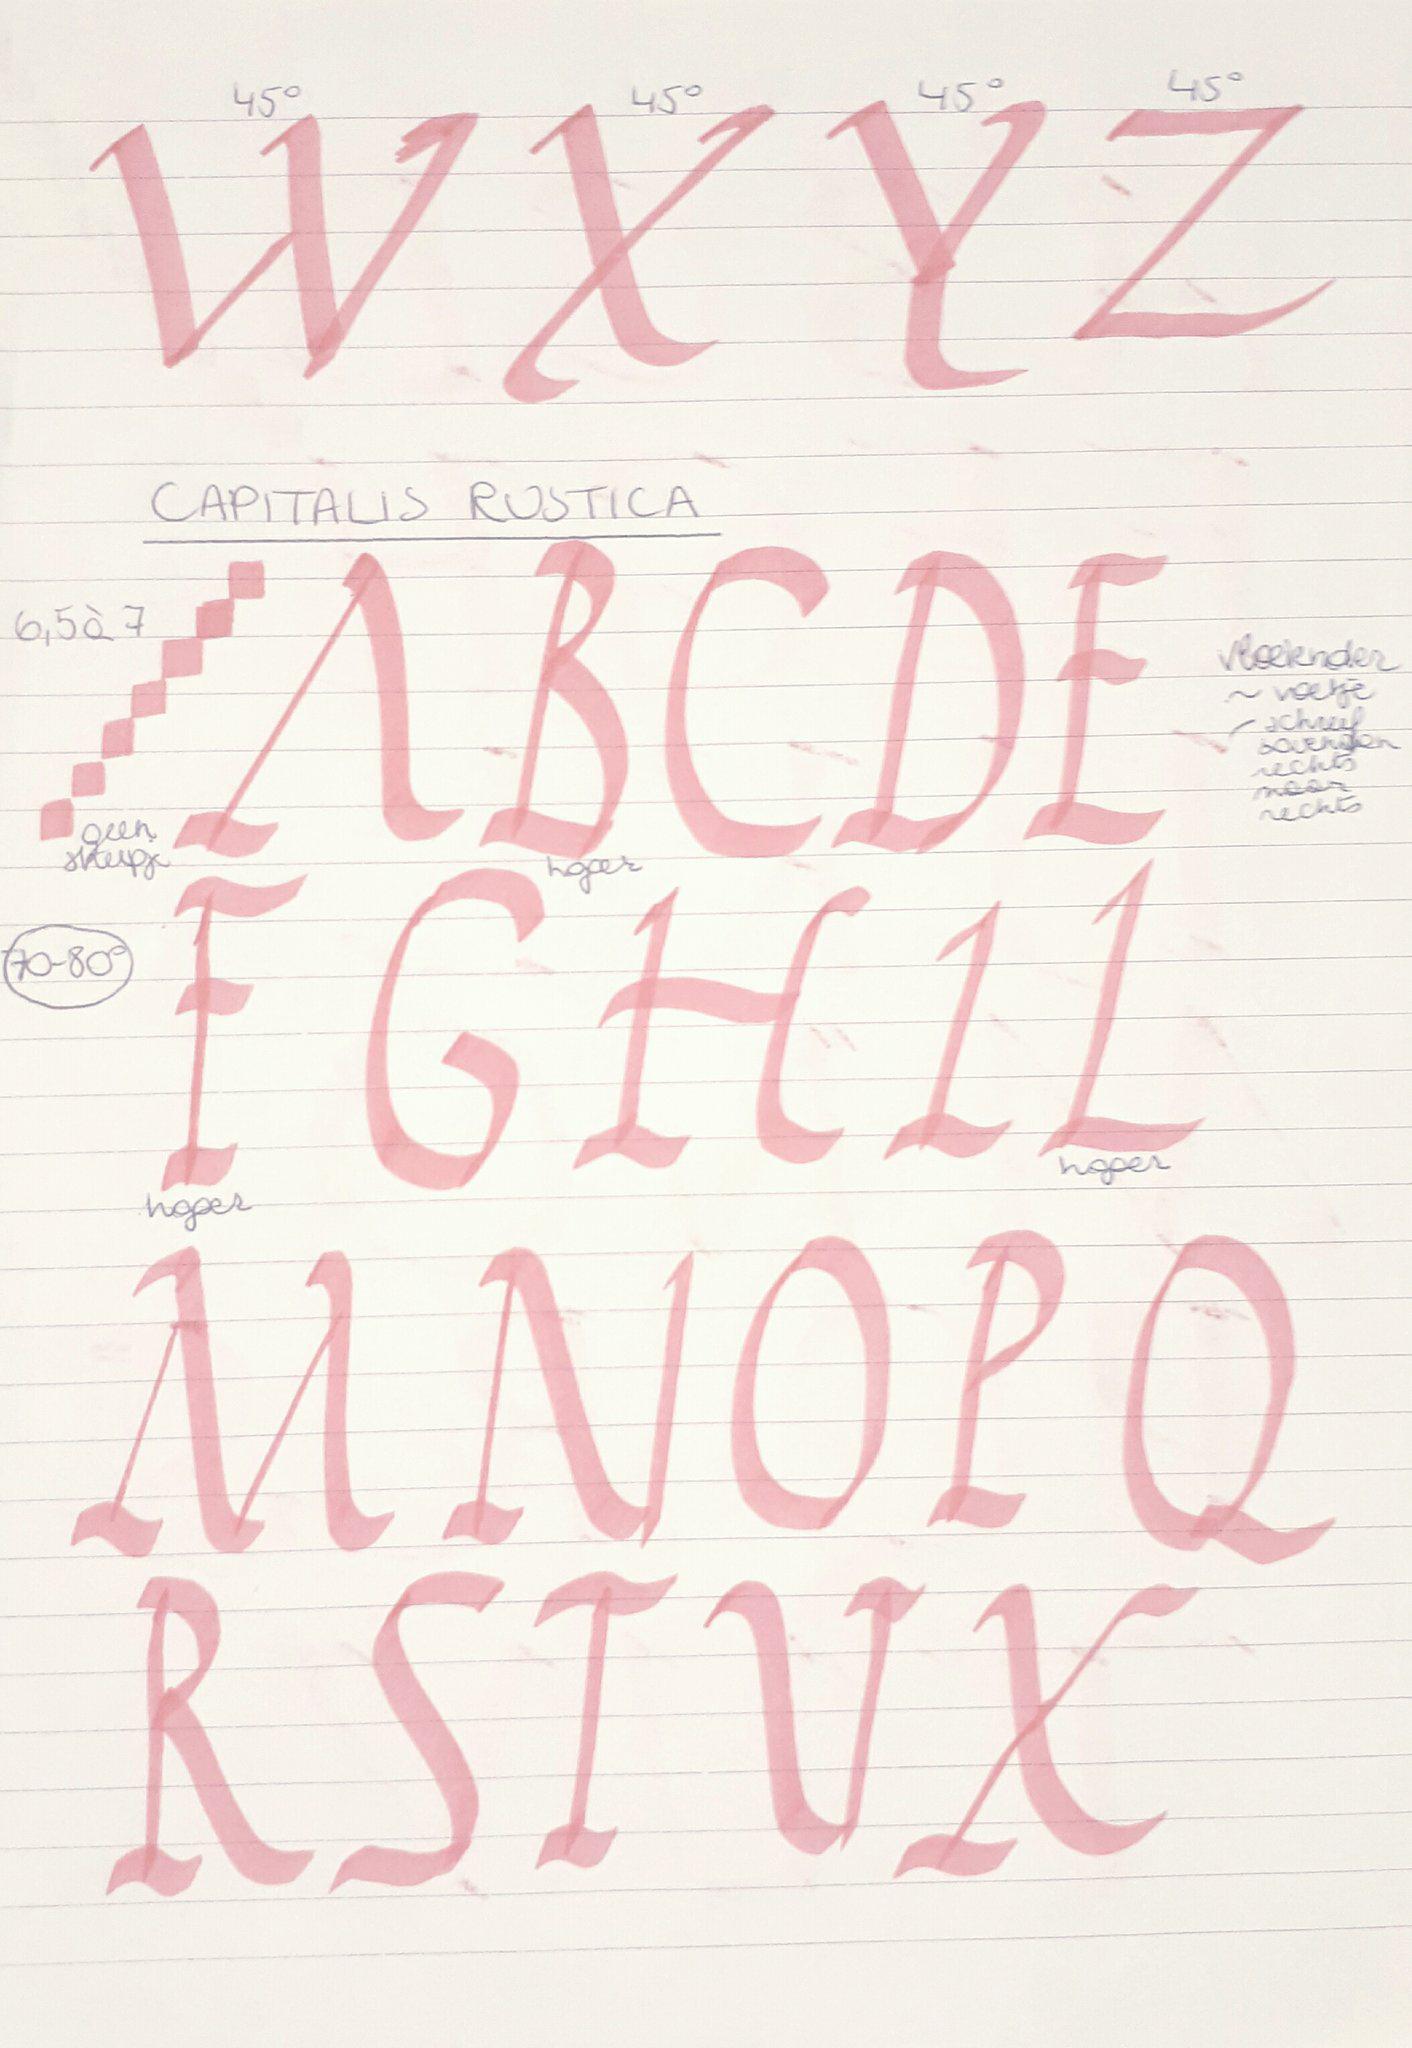 45° 45° 45° 45°
W X Y Z
CAPITALIS RUSTICA
6,5 à 7
A B C D E
vloeiender
~ voetje
- schreef
bovenaan
rechts
naar
rechts
geen
hoger
70-80°
F G H I L
hoger hoger
M N O P Q
R S T V X